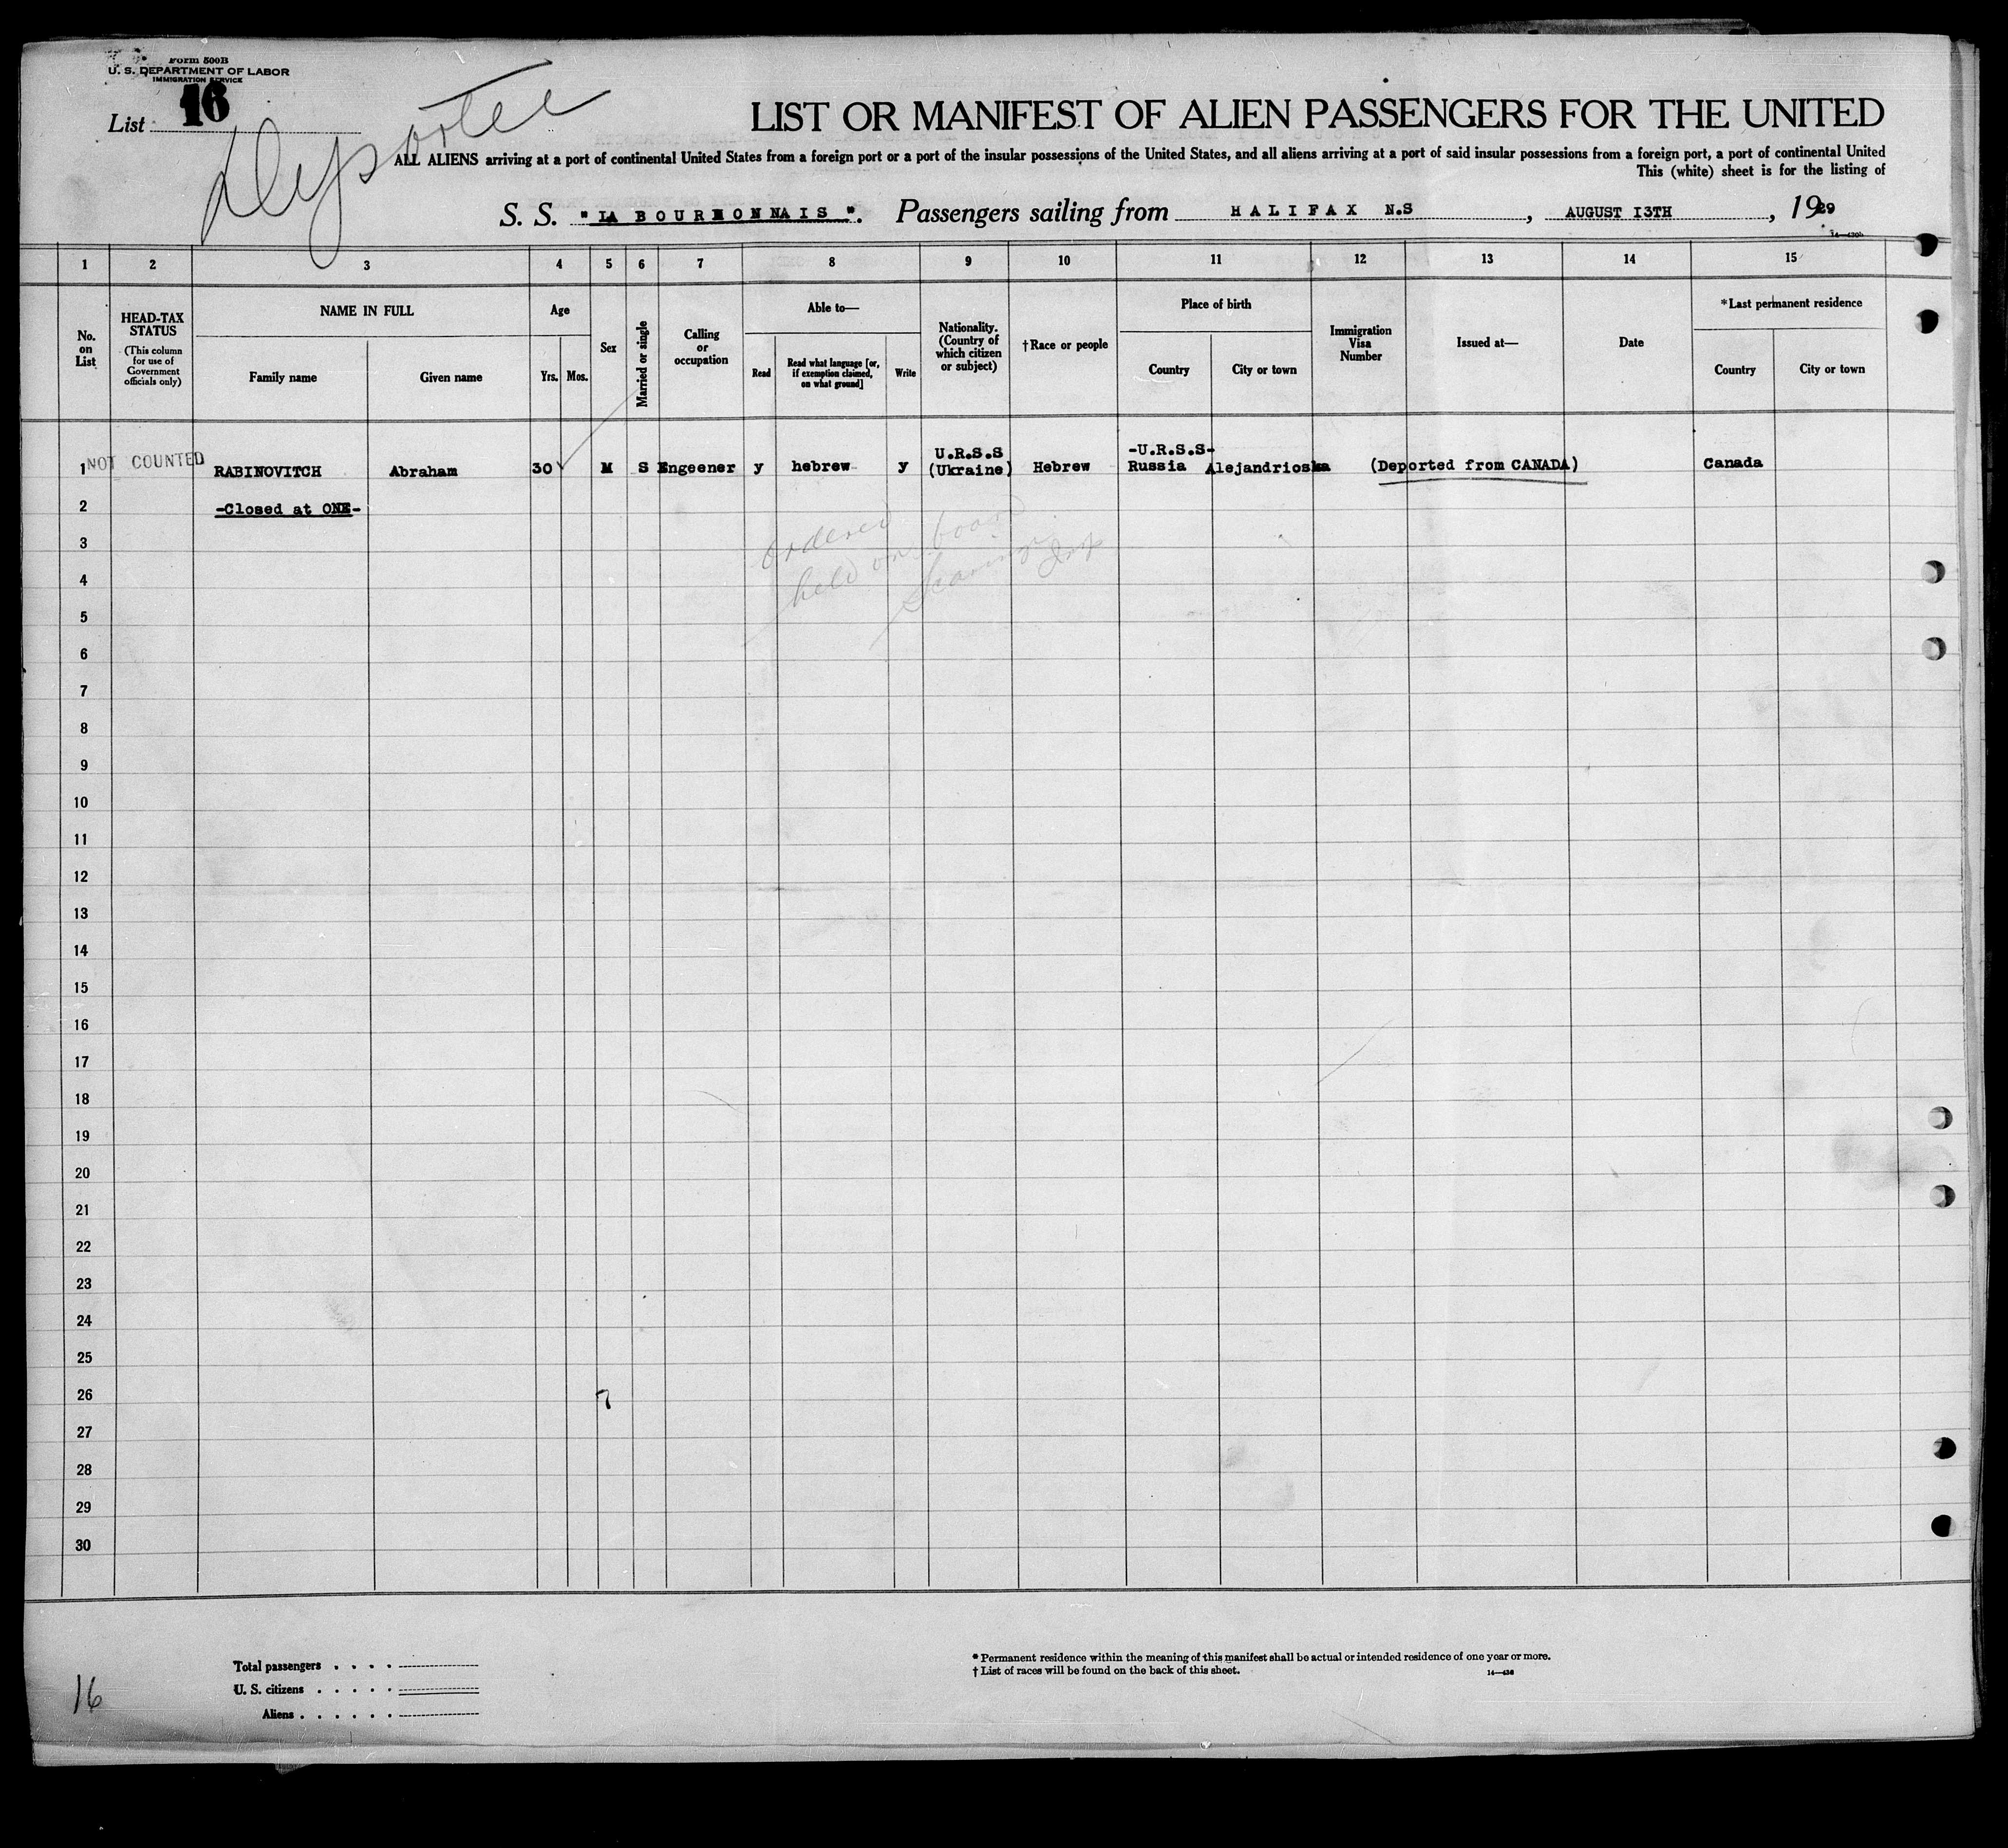 Form 500B
U. S. DEPARTMENT OF LABOR
IMMIGRATION SERVICE
List 16
Deportee
LIST OR MANIFEST OF ALIEN PASSENGERS FOR THE UNITED
ALL ALIENS arriving at a port of continental United States from a foreign port or a port of the insular possessions of the United States, and all aliens arriving at a port of said insular possessions from a foreign port, a port of continental United
This (white) sheet is for the listing of
S. S. "LA BOURDONNAIS". Passengers sailing from HALIFAX N.S , AUGUST I3TH , 1929
1 2 3 4 5 6 7 8 9 10 11 12 13 14 15
No. on List
HEAD-TAX STATUS (This column for use of Government officials only)
NAME IN FULL
Family name
Given name
Age
Yrs.
Mos.
Sex
Married or single
Calling or occupation
Able to—
Read
Read what language [or, if exemption claimed, on what ground]
Write
Nationality. (Country of which citizen or subject)
†Race or people
Place of birth
Country
City or town
Immigration Visa Number
Issued at—
Date
*Last permanent residence
Country
City or town
1 NOT COUNTED RABINOVITCH Abraham 30 M S Engeener y hebrew y U.R.S.S (Ukraine) Hebrew -U.R.S.S- Russia Alejandrioska (Deported from CANADA) Canada
2 -Closed at ONE-
ordered
held on board
3
4
5
6
7
8
9
10
11
12
13
14
15
16
17
18
19
20
21
22
23
24
25
26
27
28
29
30
Total passengers . . . .
U. S. citizens . . . . .
Aliens . . . . . .
* Permanent residence within the meaning of this manifest shall be actual or intended residence of one year or more.
† List of races will be found on the back of this sheet.
16